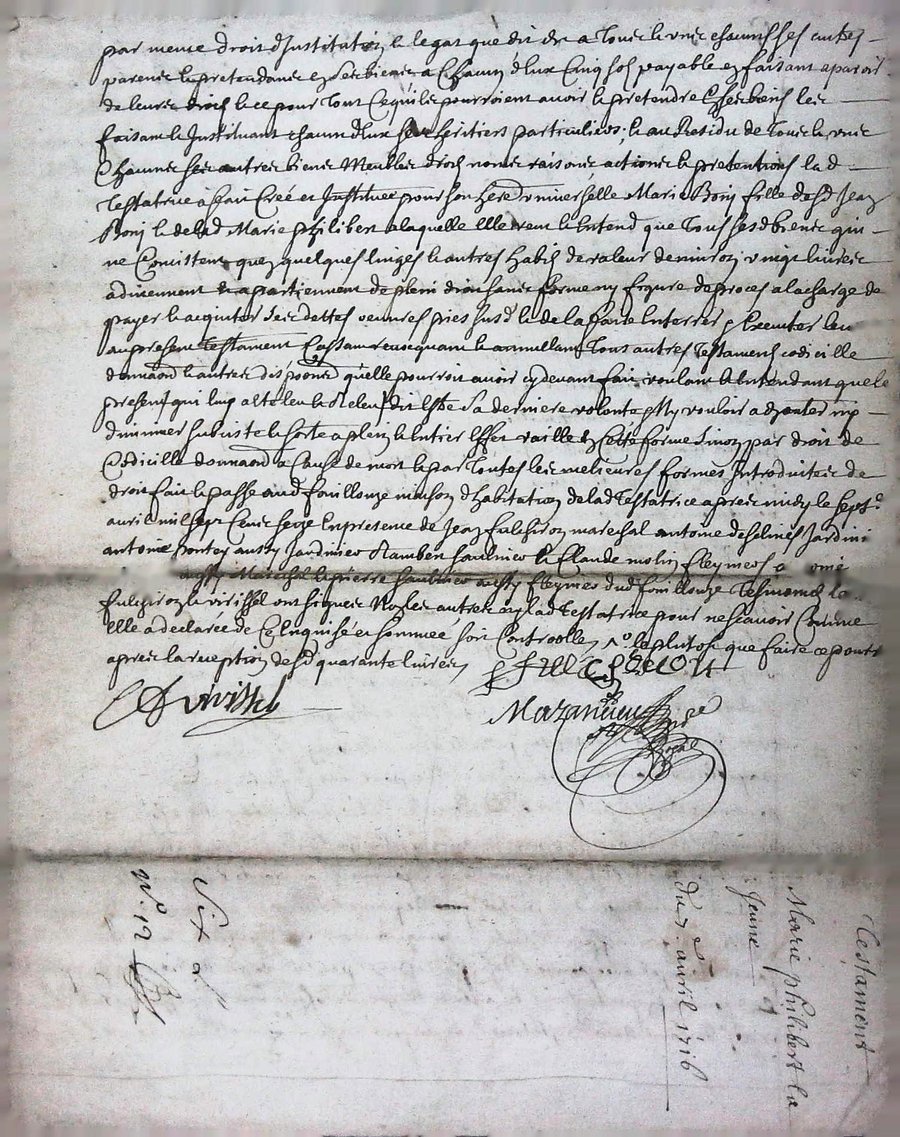 par mesme droit d'Institution & legat que dit est a Tous & uns chauns ses autres
parens & pretendans en ses biens a Chaun d'Eux Cinq sols payable en faisant aparoir
de leurs droits & ce pour Tout Ce qu'ils pourroient avoir & pretendre Esd biens les
faisant & Instituant chaun d'Eux ses heritiers particuliers, & au Residu de Tous & uns
Chauns ses autres biens Meubles droits noms raisons actions & pretentions lad
Testatrice a fait Créé et Instituée pour son here universelle Marie Bonj fille desd Jean
Bonj & de lad Marie philibert a laquelle Elle veut & Entend que Tous sesd biens qui
ne Consistent qu'en quelques linges & autres habits de valeur d'environ vingt livres
adviennent & apartiennent de plein droit sans forme ny figure de proces a la charge de
payer & acquiter ses dettes oeuvres pies susd & de la faire Enterrer & Executer le
au present Testament Cassant revoquant & annullant Tous autres Testaments codicille
donnaons & autres disposons qu'elle pourroit avoir cy devant fait voulant & Entendant que le
present qui luy a été leu & Releu dit Estre sa derniere volonté n'y vouloir adjouter ny
diminuer subsiste & sorte a plein & Entier Effet vaille En Cette forme sinon par droit de
Codicille donnaon a Cause de mort & par Toutes les melieures formes Introduites de
droit fait & passé aud fouillouze maison d'habitation de lad Testatrice apres midy le sept
avril mil sept Cens seize En presence de Jean fulchiron marechal antoine deselines Jardini
antoine pontey aussy Jardinier Rambert saulnier & Claude molin Cleymers
aussy Marechal & pierre saulnier aussy Cleymer dud fouillouze Tesmoins
fulchiron & virissel ont signés Non les autres ny lad Testatrice pour ne scavoir Comme
Elle a declarée de Ce Enquise et sommée soit Controollé, & plutost que faire ce pourra
apres la reception desd quarante livres
J Fulchiron
C Dvirissel
Mazancieu
nore
Royal
Testament
Marie philibert la
Jeune
du 7e avril 1716
Six
No. 12